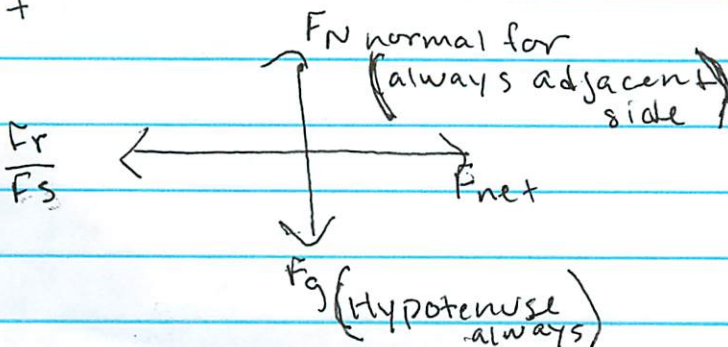 t
FN normal for
(always adjacent)
side
Fr
Fs
Fnet
Fg (Hypotenuse
always)